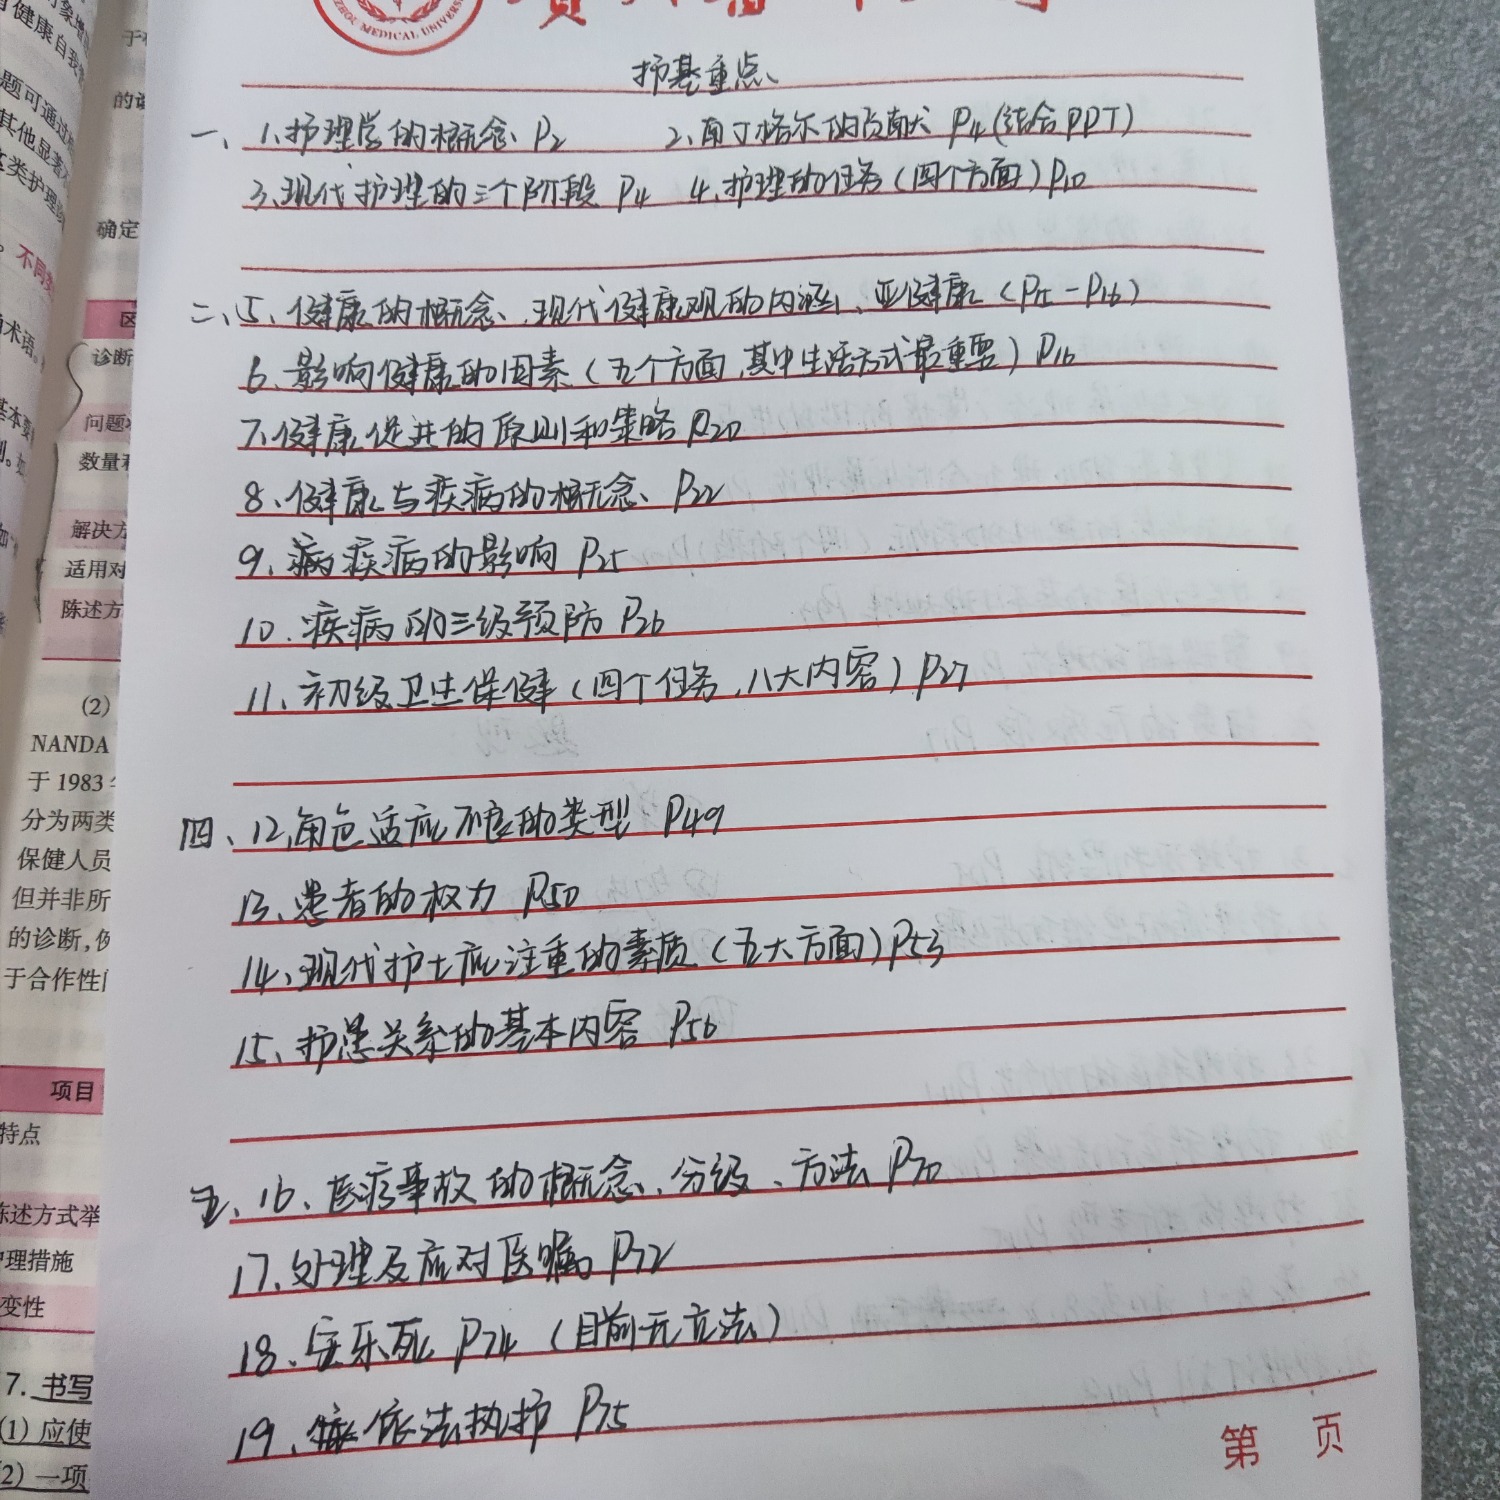 ZHOU MEDICAL UNIVERS
护基重点
一、1.护理学的概念 P2 2.南丁格尔的贡献 P4(结合PPT)
3.现代护理的三个阶段 P4 4.护理的任务(四个方面)P10
二、5、健康的概念、现代健康观的内涵、亚健康(P15-P16)
6、影响健康的因素(五个方面,其中生活方式最重要)P16
7、健康促进的原则和策略 P20
8、健康与疾病的概念、P22
9、疾病的影响 P25
10、疾病的三级预防 P26
11、初级卫生保健(四个任务、八大内容)P27
四、12、角色适应不良的类型 P49
13、患者的权力 P50
14、现代护士应注重的素质(五大方面)P53
15、护患关系的基本内容 P56
五、16、医疗事故的概念、分级、方法 P70
17、处理及应对医嘱 P72
18、安乐死 P74(目前无立法)
19、依法执护 P75
第 页
健康自我
题可通过
其他显著
这类护理
不同类
术语。
基本要
的说
确定
区
诊断
问题
数量和
解决方
适用对
陈述方
(2)
NANDA
于1983
分为两类
保健人员
但并非所
的诊断,例
于合作性
项目
特点
陈述方式举
护理措施
变性
7. 书写
(1) 应使
(2) 一项